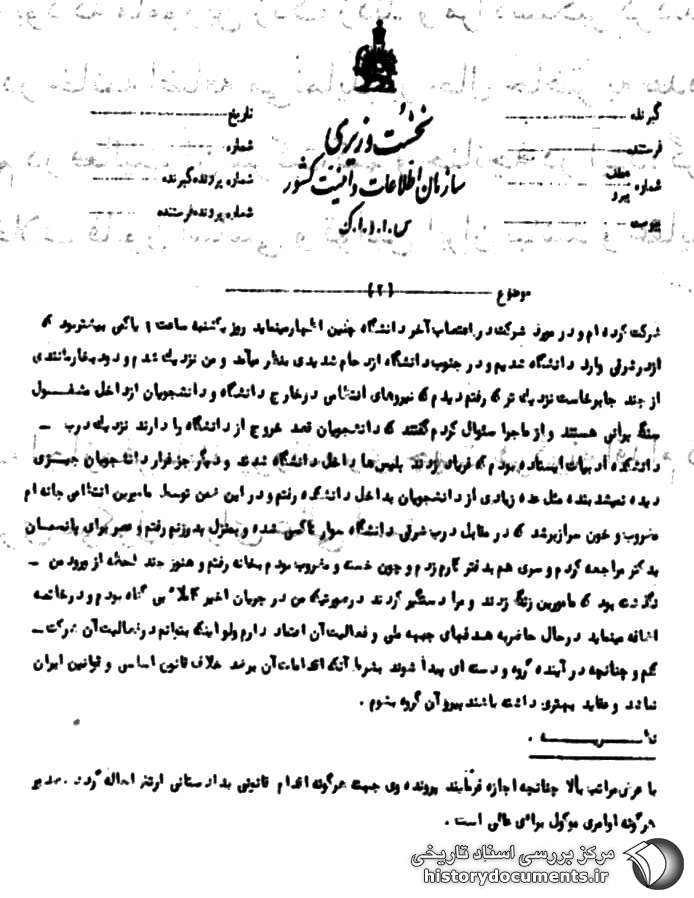 نخست وزیری
سازمان اطلاعات و امنیت کشور
س.ا.و.ا.ک
گیرنده
فرستنده
شماره عطف پیرو
پیوست
تاریخ
شماره
شماره پرونده گیرنده
شماره پرونده فرستنده
موضوع (۲)
شرکت کرده ام و در مورد شرکت در اعتصاب آخر دانشگاه چنین اظهار مینماید روز یکشنبه ساعت ۹ یا کمی بیشتر بود که
از در شرقی وارد دانشگاه شدیم و در جنوب دانشگاه ازدحام شدیدی بنظر میآمد و من نزدیک شدم و دود بخار مانندی
از چند جا برخاست نزدیک تر که رفتم دیدم که نیروهای انتظامی در خارج دانشگاه و دانشجویان از داخل مشغول
سنگ پرانی هستند و از ماجرا سئوال کردم گفتند که دانشجویان قصد خروج از دانشگاه را دارند نزدیک درب -
دانشکده ادبیات ایستاده بودم که فریاد زدند پلیس ها داخل دانشگاه شدند و دیگر جز فرار دانشجویان چیزی
دیده نمیشد بنده مثل عده زیادی از دانشجویان بداخل دانشکده رفتم و در این ضمن توسط مامورین انتظامی چانه ام
مضروب و خون سرازیر شد که در مقابل درب شرقی دانشگاه سوار تاکسی شده و بمنزل پدرزنم رفتم و عصر برای پانسمان
بدکتر مراجعه کردم و سری هم بدفتر کارم زدم و چون خسته و مضروب بودم بخانه رفتم و هنوز چند لحظه از ورود من -
نگذشته بود که مامورین زنگ زدند و مرا دستگیر کردند درصورتیکه من در جریان اخیر کاملا بی گناه بودم و در خاتمه
اضافه مینماید در حال حاضر به هدفهای جبهه ملی و فعالیت آن اعتماد دارم ولو اینکه بتوانم در فعالیت آن شرکت -
کنم و چنانچه در آینده گروه و دسته ای پیدا شوند بشرط آنکه اقدامات آن بر ضد خلاف قانون اساسی و قوانین ایران
نباشد و عقاید بهتری داشته باشند پیرو آن گروه بشوم .
نظریه .
با عرض مراتب بالا چنانچه اجازه فرمایند پرونده وی جهت هرگونه اقدام قانونی بدادستانی ارتش احاله گردد .
هرگونه اوامری موکول برای عالی است .
مرکز بررسی اسناد تاریخی
historydocuments.ir